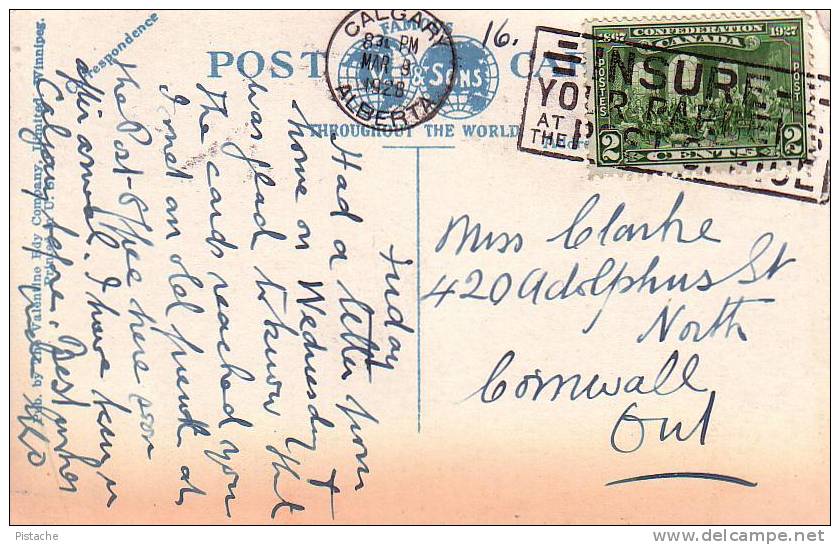 16.
POST CARD
FAMOUS
& SONS
THROUGHOUT THE WORLD
CALGARY
PM
MAR 9
1928
ALBERTA
INSURE
YOUR PARCELS
AT
THE POST OFFICE
1867 CONFEDERATION 1927
CANADA
POSTES POST
2 CENTS 2
Correspondence
Pub. by The Valentine Edy Company, Limited, Winnipeg.
Printed in U.S.
Friday
Had a letter from
home on Wednesday &
was glad to know that
the cards reached you
I met an old friend at
the Post Office here soon
after arrival. I have been in
Calgary before. Best wishes
Miss Clarke
420 Adolphus St
North
Cornwall
Ont
Pistache
www.delcampe.net